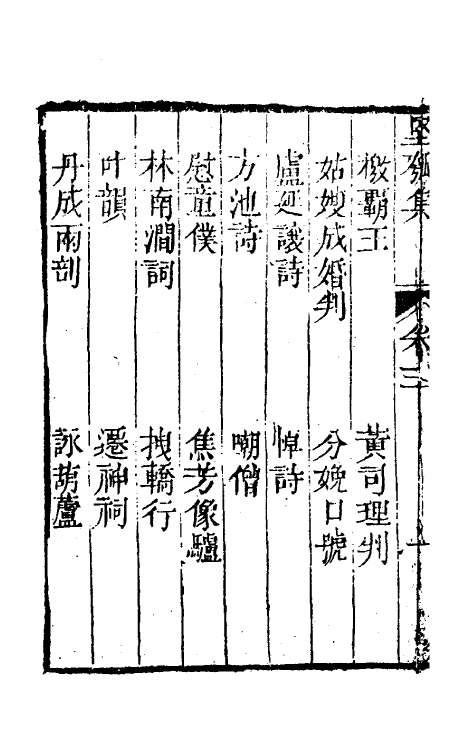 堅瓠集
檄霸王　黃司理判
姑嫂成婚判　分娩口號
盧廷讓詩　悼詩
方池詩　嘲僧
慰童僕　焦芳像驢
林南澗詞　拽轎行
叶韻　遷神祠
丹成兩剖　詠葫蘆